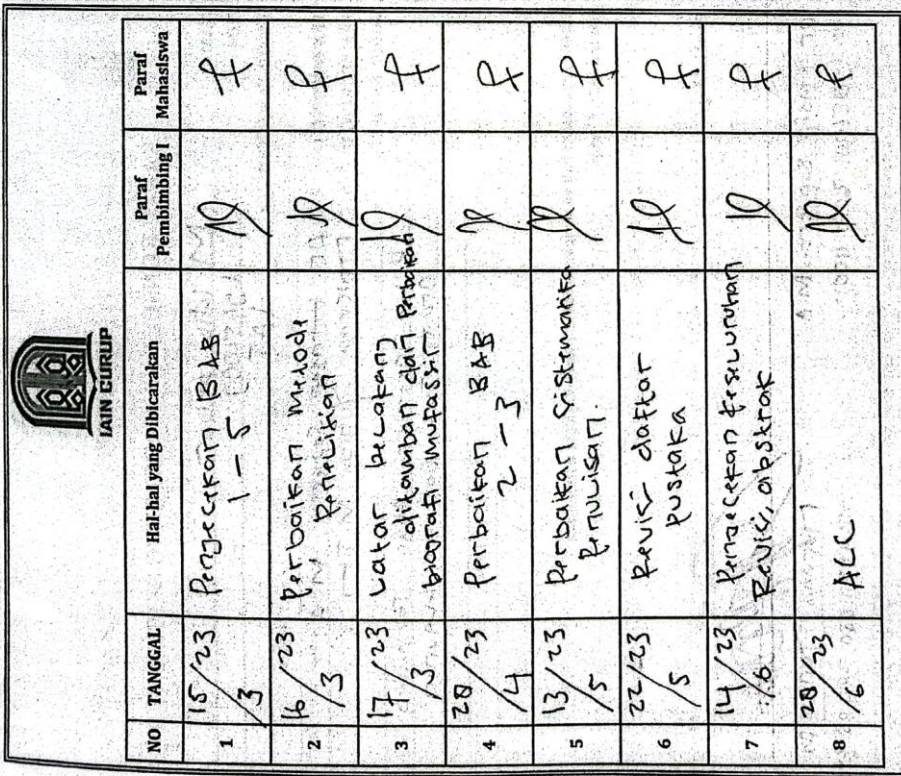 IAIN CURUP
NO TANGGAL Hal-hal yang Dibicarakan Paraf Pembimbing I Paraf Mahasiswa
1 15/23/3 Pengecekan BAB
1 - 5
2 16/23/3 Perbaikan metode
Penelitian
3 17/23/3 Latar belakang
ditambah dan Perbaikan
biografi mufassir
4 28/23/4 Perbaikan BAB
2 - 3
5 13/23/5 Perbaikan Sistematika
Penulisan.
6 22/23/5 Revisi daftar
pustaka
7 14/23/6 Pengecekan keseluruhan
Revisi, abstrak
8 28/23/6 ACC